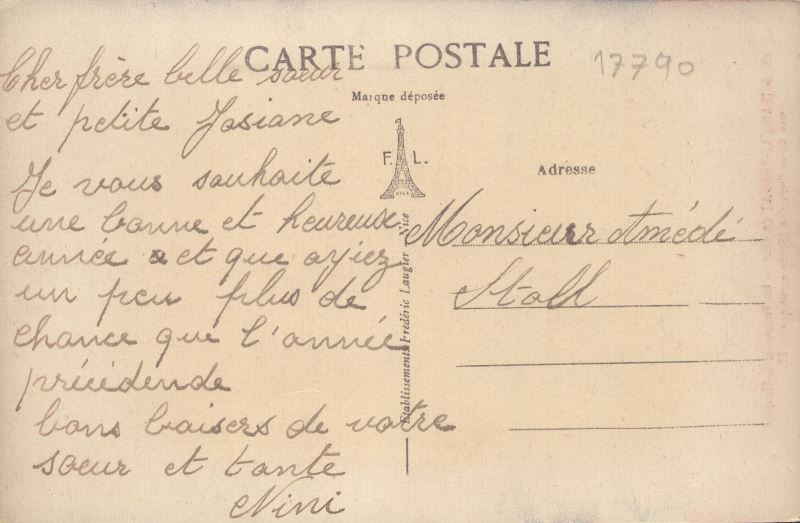 CARTE POSTALE
17790
Marque déposée
F. L.
NICE
Adresse
Etablissements Frédéric Laugier Nice
Cher frère belle soeur
et petite Josiane
Je vous souhaite
une bonne et heureuse
année et que ayiez
un peu plus de
chance que l'année
précédende
bons baisers de votre
soeur et tante
Nini
Monsieur Amédé
Stoll